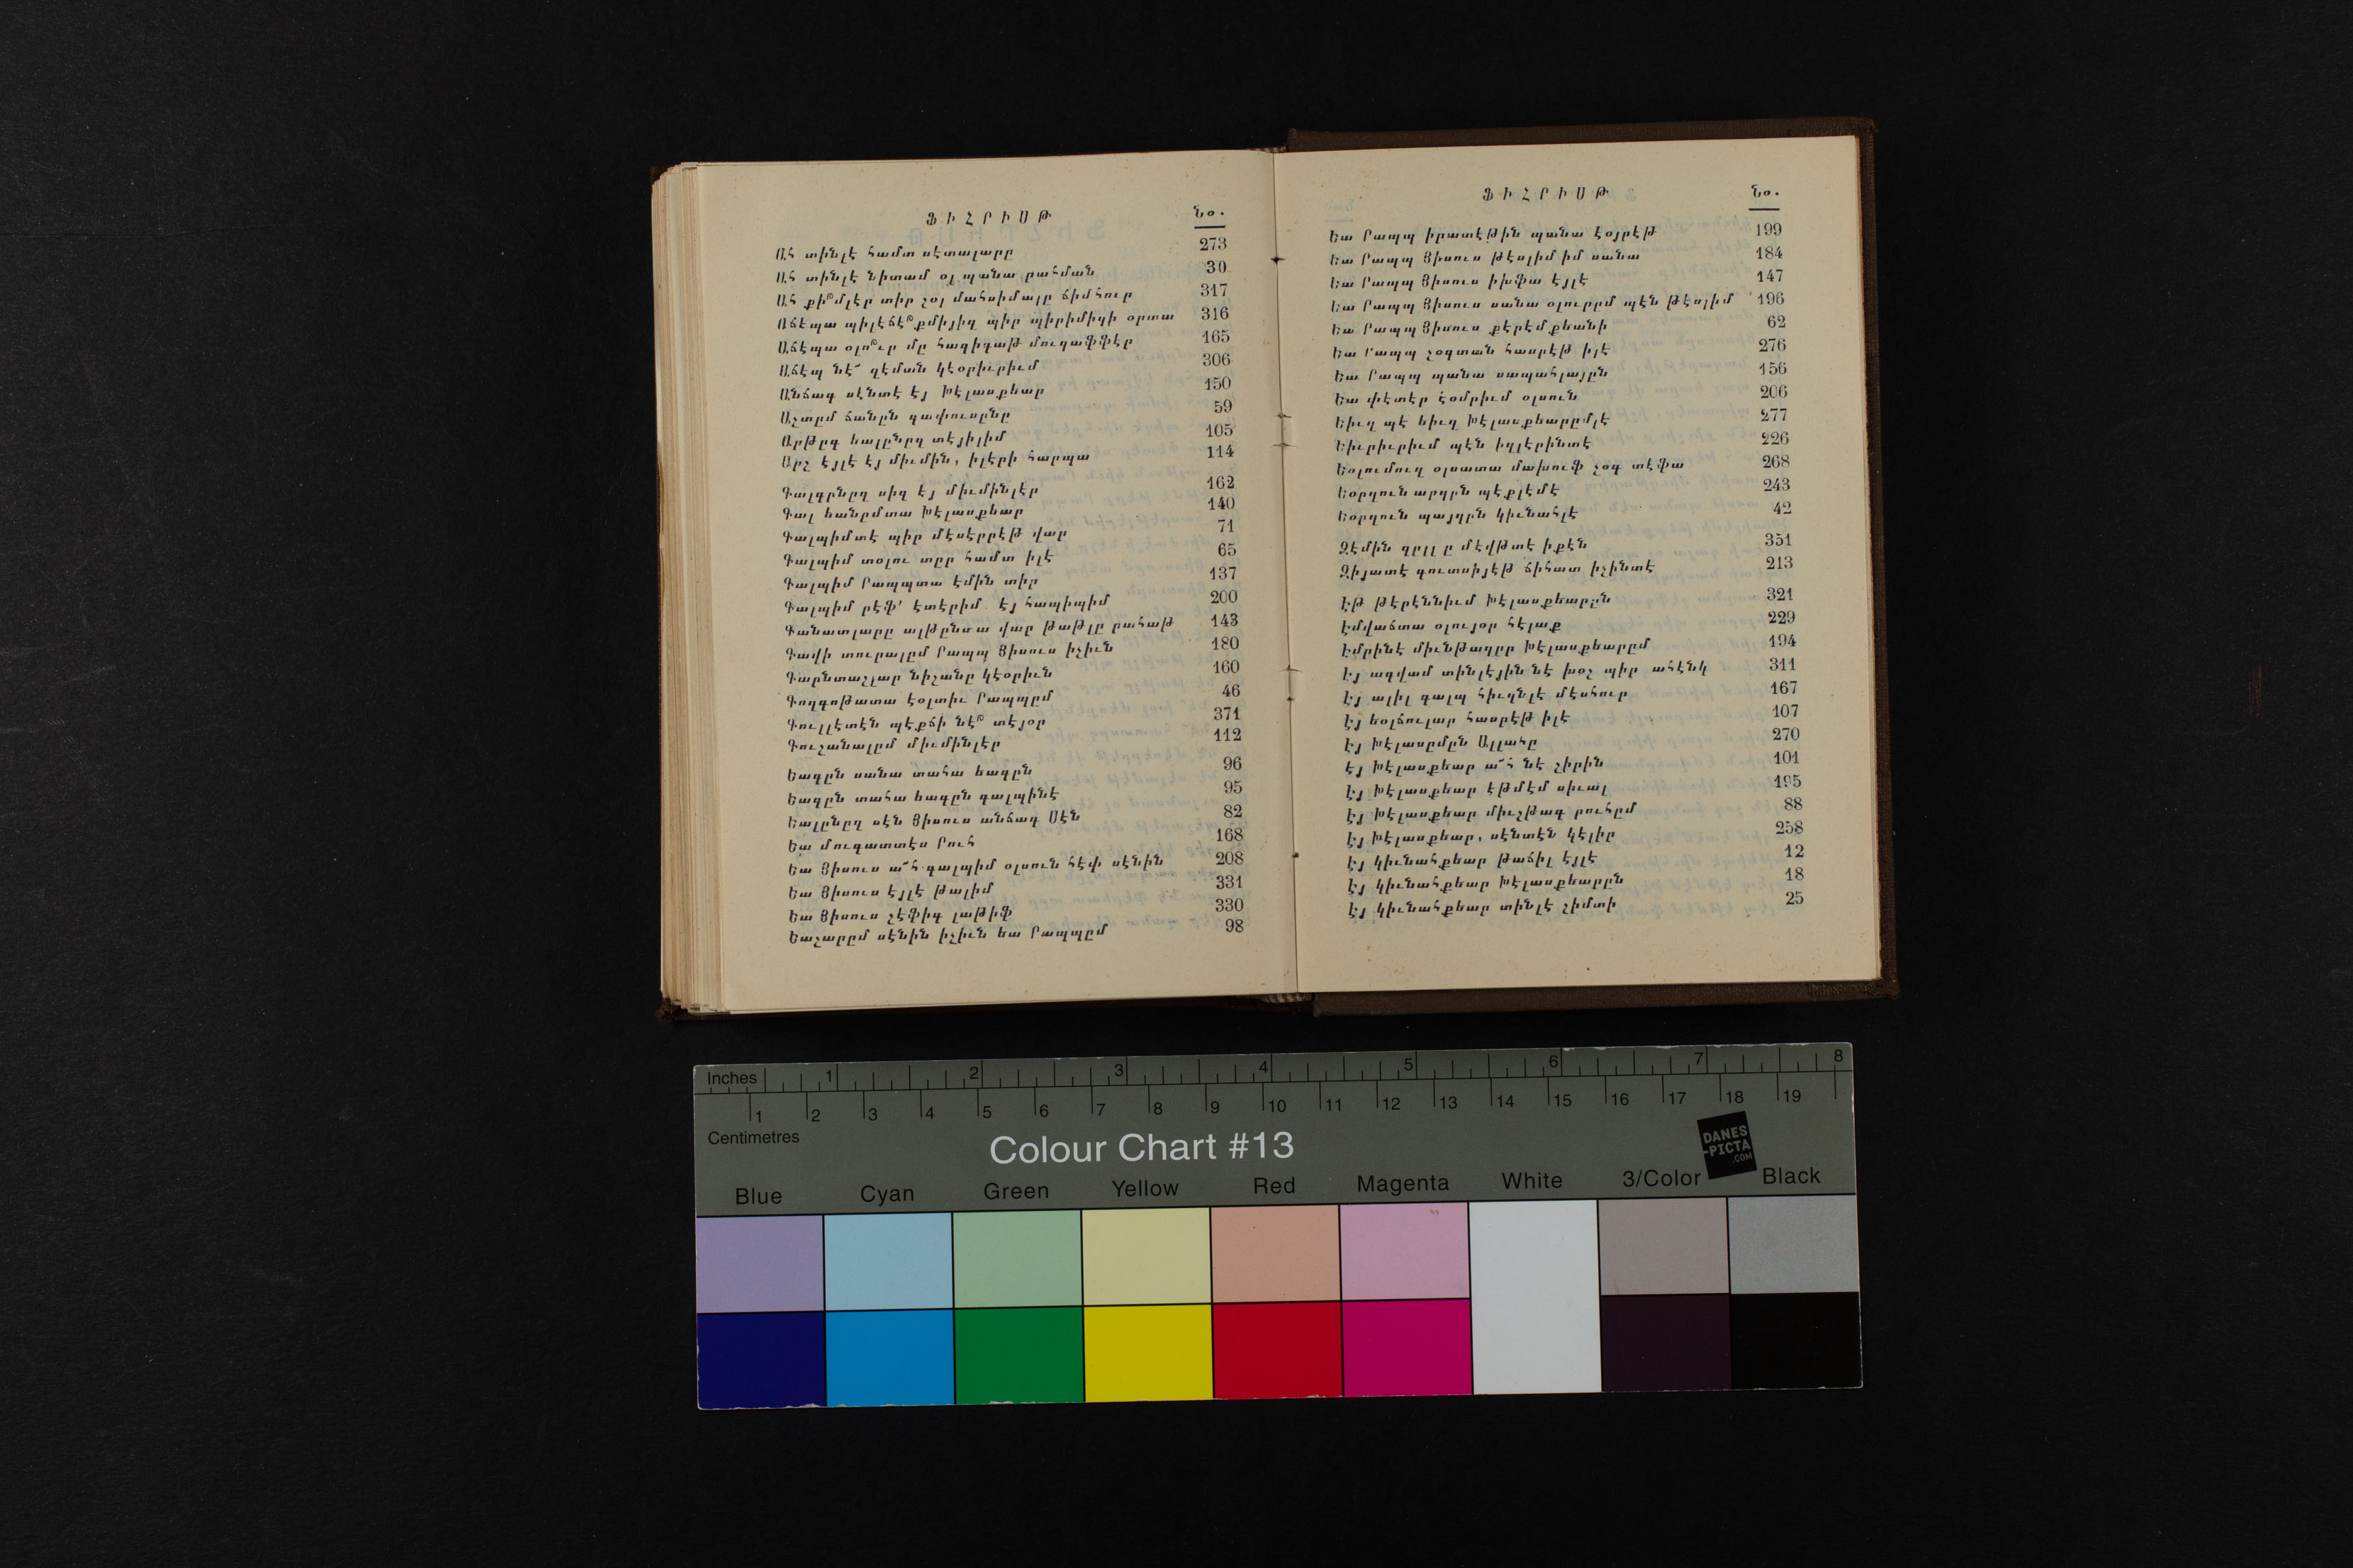 ՖԻՀՐԻՍԹ Նօ.
Ահ տինլէ համտ սէտալարը 273
Ահ տինլէ նիտամ օլ պանա րահման 30
Ահ քի՞մլէր տիր չօլ մահսիմալը ճիմհուր 317
Աճէպա պիլէճէ՞քմիյիզ պիր պիրիմիզի օրտա 316
Աճէպա օլո՞ւր մը հագիգաթ մուղաֆֆէր 165
Աճէպ նէ՛ զէման կէօրիւրիւմ 306
Անճագ սէնտէ էյ Խէլասքեար 150
Աչտըմ ճանըն գափուսընը 59
Արթըգ եալընըզ տէյիլիմ 105
Արշ էյլէ էյ միւմին, իլէրի հարպա 114
Գալգընըզ սիզ էյ միւմինլէր 162
Գալ եանըմտա Խէլասքեար 140
Գալպիմտէ պիր մէսէրրէթ վար 71
Գալպիմ տօլու տըր համտ իլէ 65
Գալպիմ Րապպտա էմին տիր 137
Գալպիմ րէֆ՛ էտէրիմ էյ հապիպիմ 200
Գանատլարը ալթընտա վար թաթլը րահաթ 143
Գավի տուրալըմ Րապպ Յիսուս իչիւն 180
Գարնտաշլար նիշանը կէօրիւն 160
Գողգոթատա էօլտիւ Րապպըմ 46
Գուլլէտէն պէքճի նէ՞ տէյօր 371
Գուշանալըմ միւմինլէր 112
Եագըն սանա տահա եագըն 96
Եագըն տահա եագըն գալպինէ 95
Եալընըզ սէն Յիսուս անճագ Սէն 82
Եա մուգատտէս Րուհ 168
Եա Յիսուս ա՛հ գալպիմ օլսուն հէփ սէնին 208
Եա Յիսուս էյլէ թալիմ 331
Եա Յիսուս շէֆիգ լաթիֆ 330
Եաշարըմ սէնին իչիւն եա Րապպըմ 98
ՖԻՀՐԻՍԹ Նօ.
Եա Րապպ իրատէթին պանա էօյրէթ 199
Եա Րապպ Յիսուս թէսլիմ իմ սանա 184
Եա Րապպ Յիսուս իխֆա էյլէ 147
Եա Րապպ Յիսուս սանա օլուրըմ պէն թէսլիմ 196
Եա Րապպ Յիսուս քէրէմքեանի 62
Եա Րապպ չօգտան հասրէթ իլէ 276
Եա Րապպ պանա սապահլայըն 156
Եա փէտէր էօմրիւմ օլսուն 206
Եիւզ պէ եիւզ Խէլասքեարըմլէ 277
Եիւրիւրիւմ պէն իզլէրինտէ 226
Եօլումուզ օլսատա մախուֆ չօգ տէֆա 268
Եօրղուն արղըն պէքլէմէ 243
Եօրղուն պայղըն կիւնահլէ 42
Զէմին գըլլը մէվթտէ իքէն 351
Զիյատէ գուտսիյէթ ճիհատ իչինտէ 213
Էթ թէրէննիւմ Խէլասքեարըն 321
Էմվաճտա օլույօր հէլաք 229
Էմրինէ միւնթազըր Խէլասքեարըմ 194
Էյ ագվամ տինլէյին նէ խօշ պիր ահէնկ 311
Էյ ալիլ գալպ հիւզնլէ մէսհուր 167
Էյ եօլճուլար հասրէթ իլէ 107
Էյ Խէլասըմըն Ալլահը 270
Էյ Խէլասքեար ա՛հ նէ շիրին 101
Էյ Խէլասքեար էթմէմ սիւալ 195
Էյ Խէլասքեար միւշթագ րուհըմ 88
Էյ Խէլասքեար, սէնտէն կէլիր 258
Էյ կիւնահքեար թաճիլ էյլէ 12
Էյ կիւնահքեար Խէլասքեարըն 18
Էյ կիւնահքեար տինլէ շիմտի 25
Inches 1 2 3 4 5 6 7 8
1 2 3 4 5 6 7 8 9 10 11 12 13 14 15 16 17 18 19
Centimetres
Colour Chart #13
DANES
-PICTA
.COM
Blue Cyan Green Yellow Red Magenta White 3/Color Black